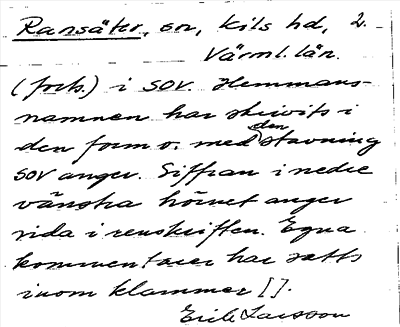 Ransäter, sn, Kils hd, 2.
Värml. län.
(forts.) i SOV. Hemmans-
namnen har skrivits i
den form o. med den stavning
SOV anger. Siffran i nedre
vänstra hörnet anger
sida i renskriften. Egna
kommentarer har satts
inom klammer [].
Erik Larsson